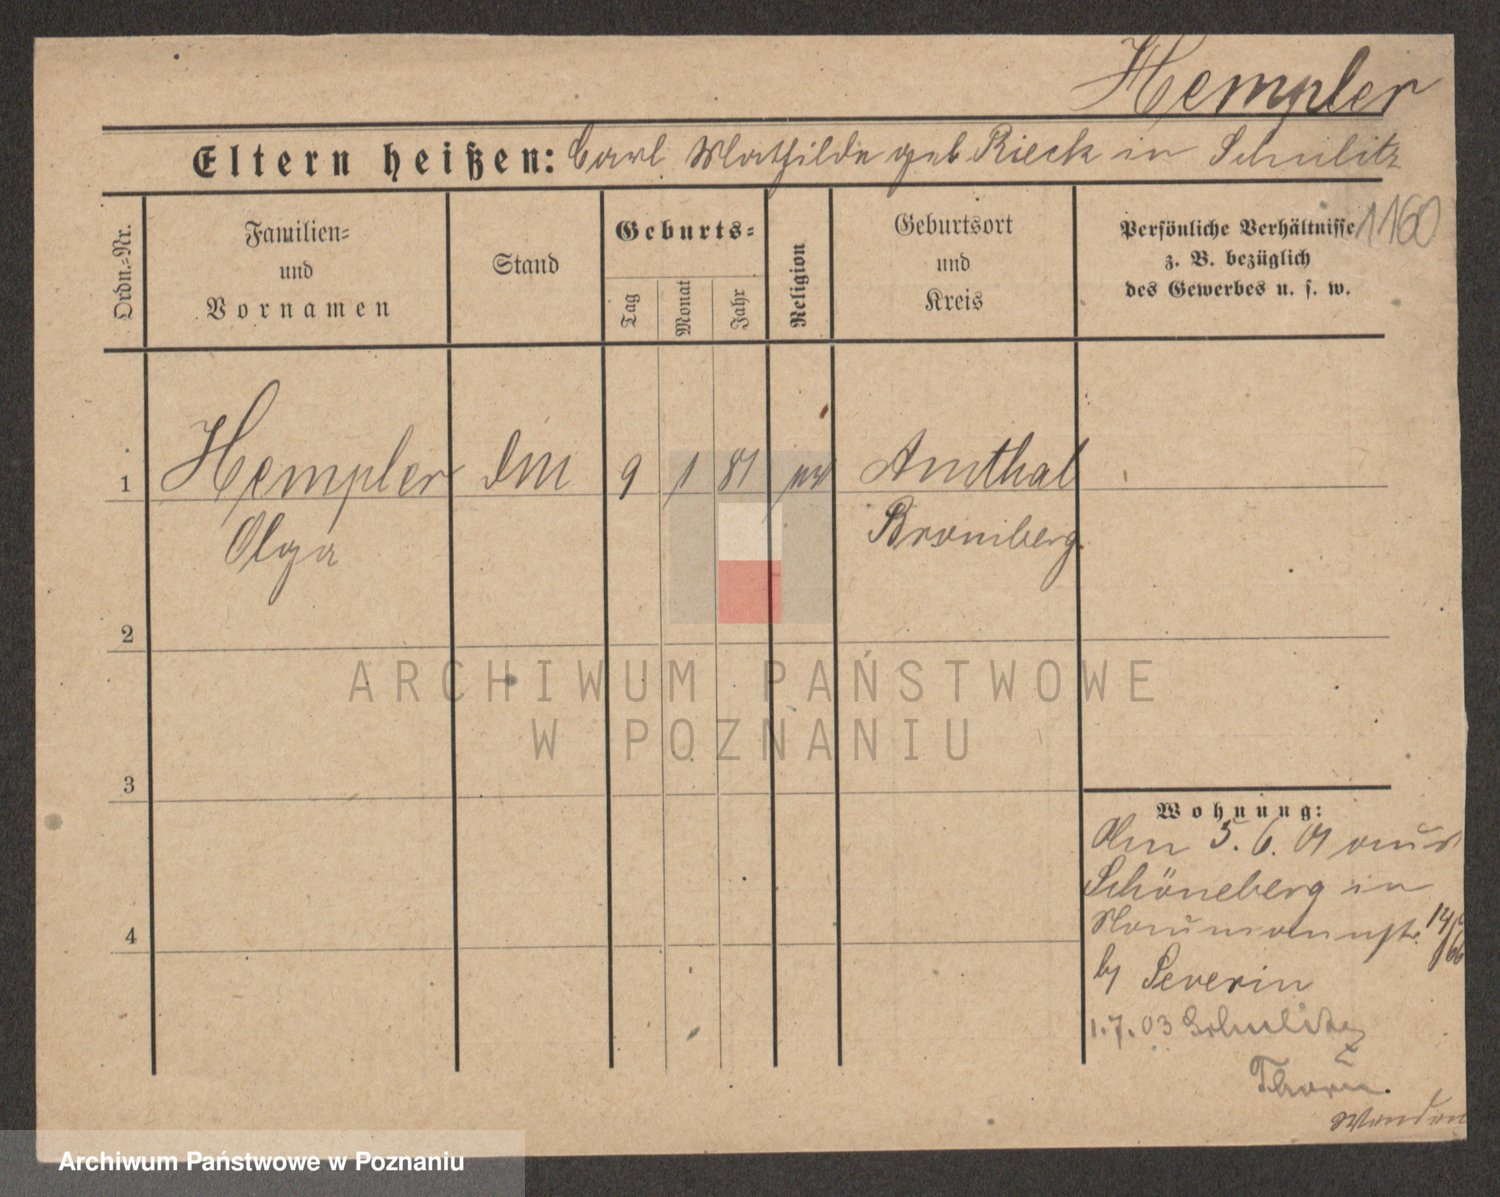 Hempler
Eltern heißen: Carl Mathilde geb Rieck in Schulitz
1160
Ordn.-Nr.
Familien-
und
Vornamen
Stand
Geburts-
Tag
Monat
Jahr
Religion
Geburtsort
und
Kreis
Persönliche Verhältnisse
z. B. bezüglich
des Gewerbes u. s. w.
1 Hempler 9 1 81 Amthal
Olga Bromberg
2
3
4
Wohnung:
5. 6. 01 aus
Schöneberg in
Naumannstr.
by Severin
1.7.03 Schulitz
Thorn.
Wenden
ARCHIWUM PAŃSTWOWE
W POZNANIU
Archiwum Państwowe w Poznaniu